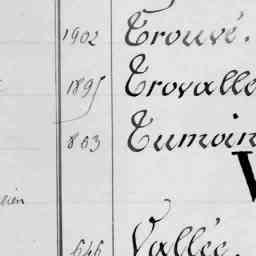 1902 Trouvé.
1895 Trovalle
863 Tumoin
V
646 Vallée.